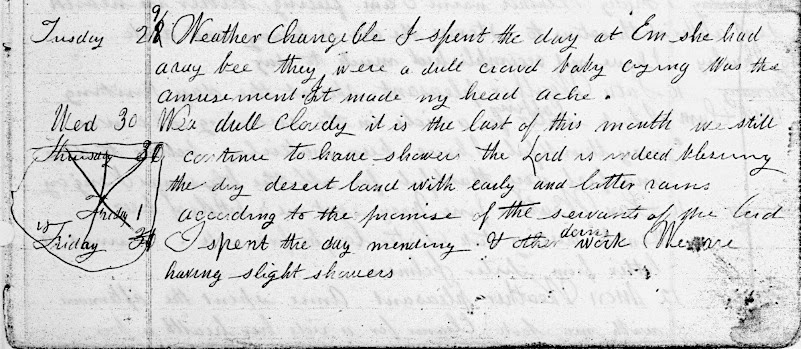 Tusday 29 Weather Changible I spent the day at Em she had
a rag bee they were a dull crowd baby crying was the
amusement. It made my head ache.
Wed 30 Wea dull Cloudy it is the last of this month we still
Thursday continue to have showers the Lord is indeed blessing
the dry desert land with early and latter rains
Friday 1 according to the promise of the servants of the Lord
Friday I spent the day mending & doing other work We are
having slight showers